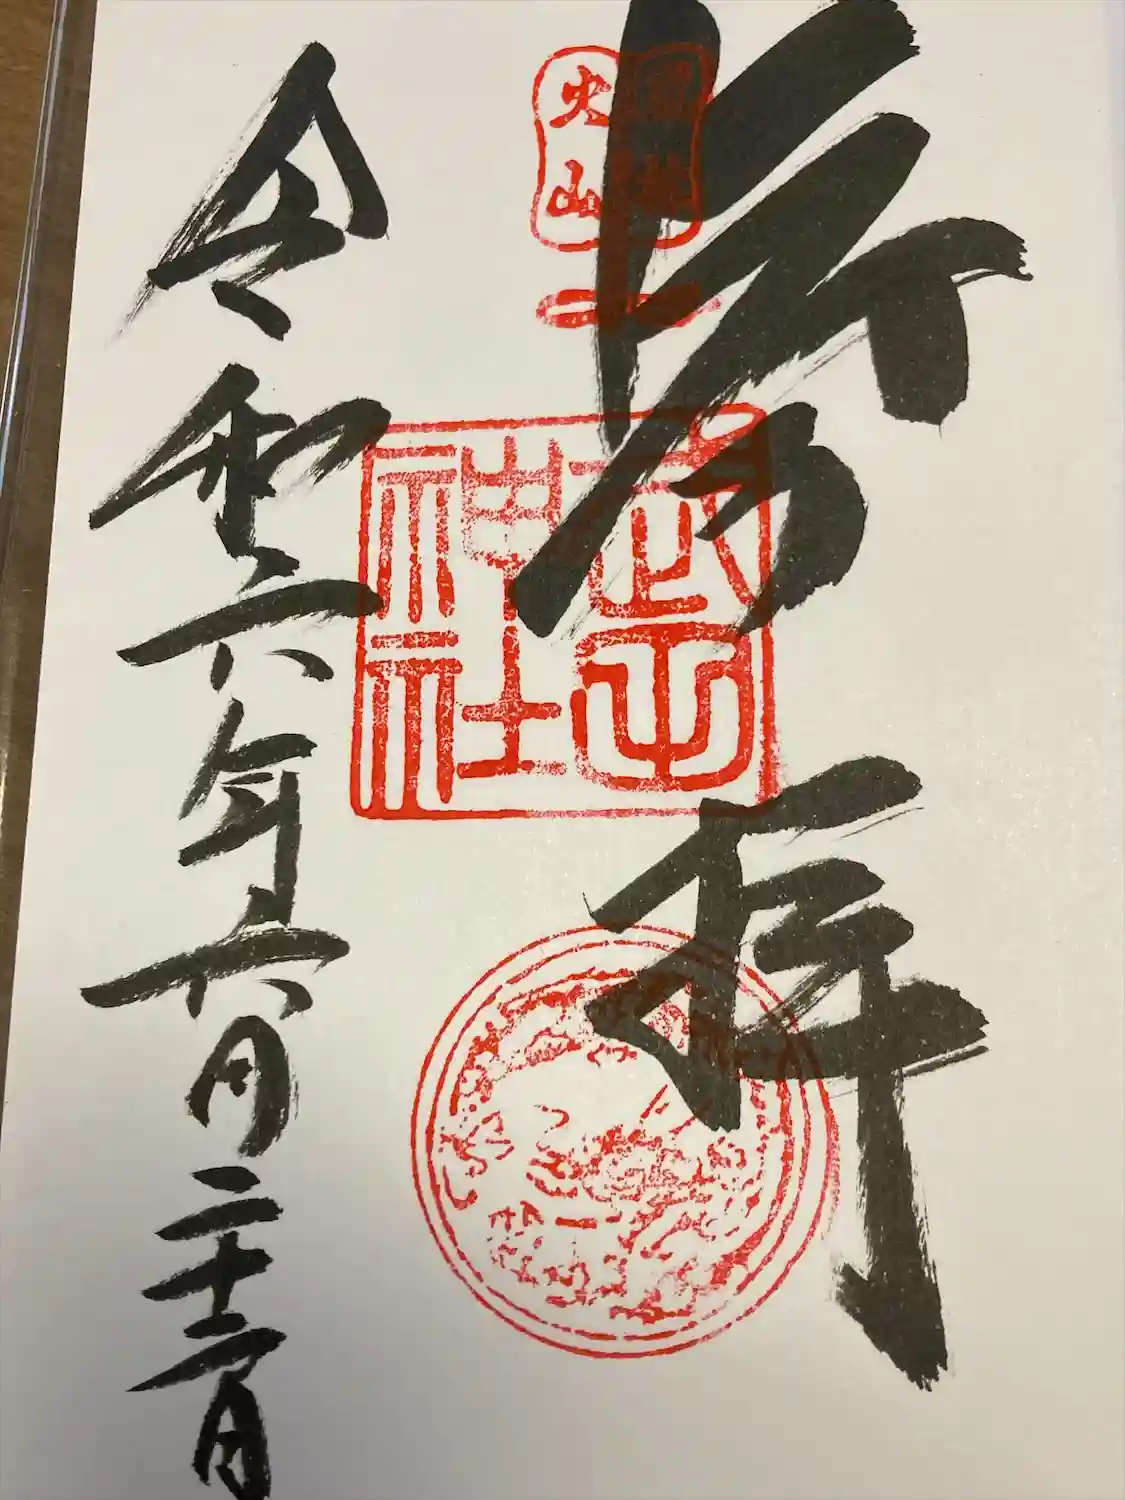 奉拝
火山
神社
令和六年六月二十二日